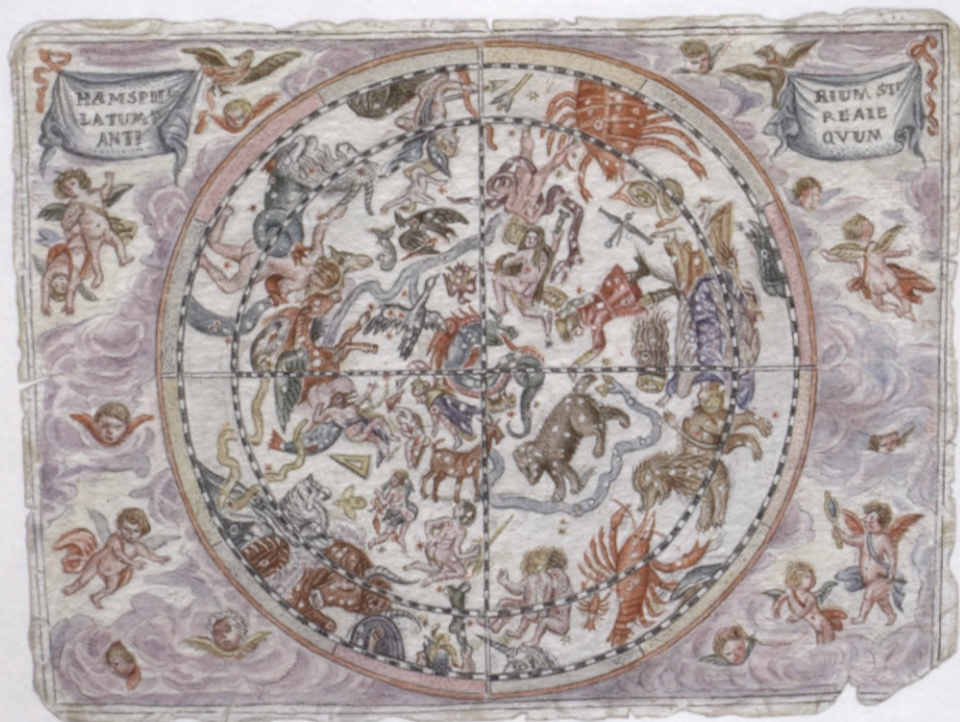 HÆMSPHI
LATUM
ANTI
RIUM STE
REALE
QVUM